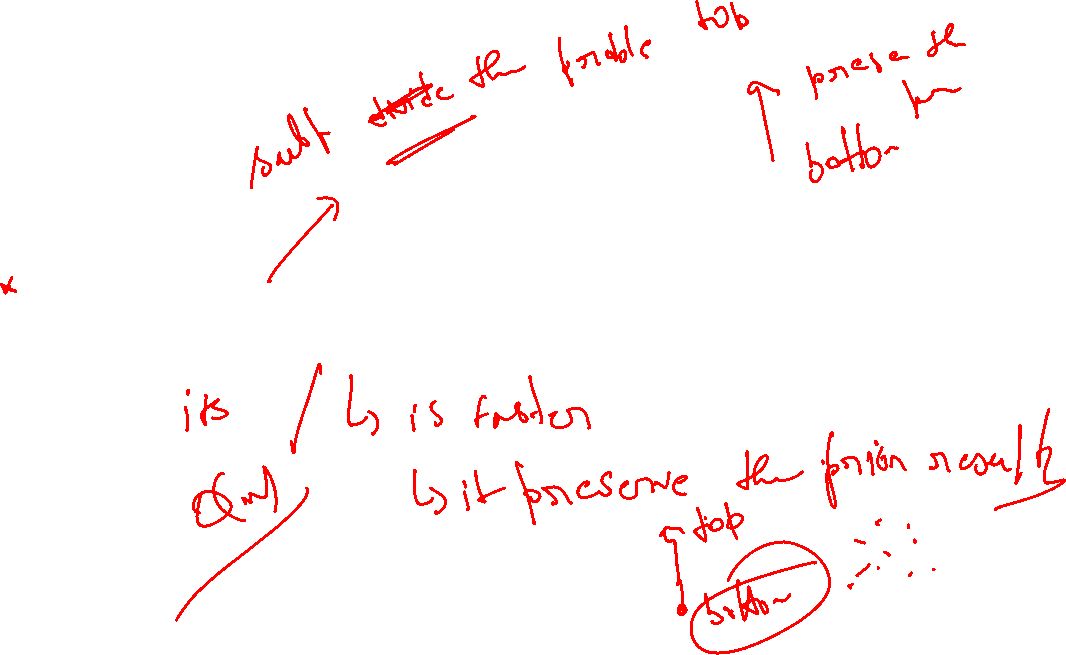 sub the proble top
prese th
bottom
its is faster
O(n) it preserve the prior result
top
bottom